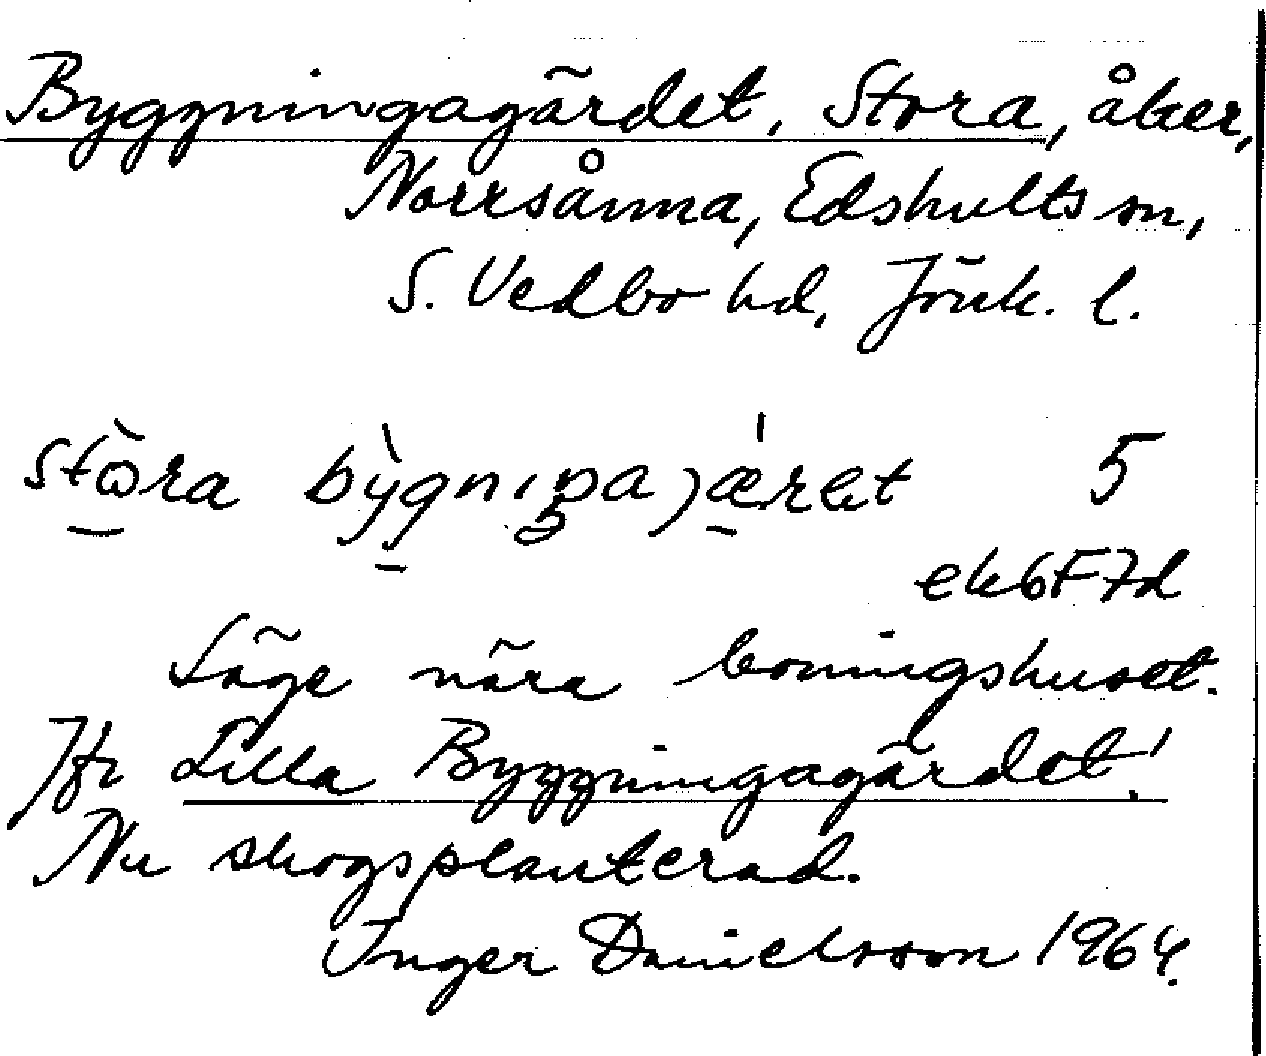 Byggningagärdet, Stora, åker,
Norrsånna, Edshults sn,
S. Vedbo hd, Jönk. l.
stòra bỳgnıŋaȷæ̀ret 5
ek6F7d
Läge nära boningshuset.
Jfr Lilla Byggningagärdet!
Nu skogsplanterad.
Inger Danielsson 1964.